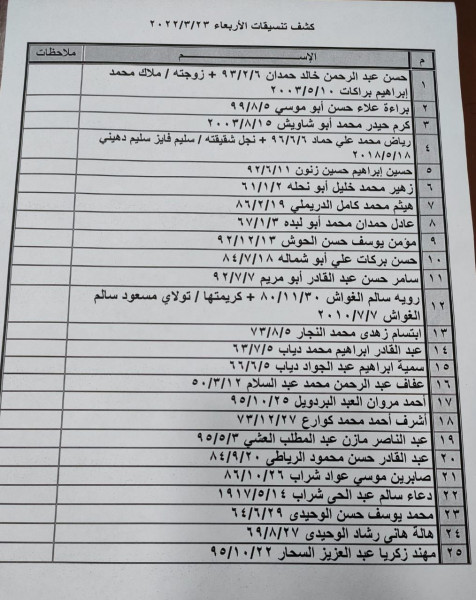 كشف تنسيقات الأربعاء ٢٠٢٢/٣/٢٣
م الإســــــــم ملاحظات
١ حسن عبد الرحمن خالد حمدان ٩٣/٢/٦ + زوجته / ملاك محمد
إبراهيم براكات ٢٠٠٣/٥/١٠
٢ براءة علاء حسن أبو موسي ٩٩/٨/٥
٣ كرم حيدر محمد أبو شاويش ٢٠٠٣/٨/١٥
٤ رياض محمد علي حماد ٩٦/٦/٦ + نجل شقيقته / سليم فايز سليم دهيني
٢٠١٨/٥/١٨
٥ حسين إبراهيم حسين زنون ٩٢/٦/١١
٦ زهير محمد خليل أبو نحله ٦١/١/٢
٧ هيثم محمد كامل الدريملي ٨٦/٢/١٩
٨ عادل حمدان محمد أبو لبده ٦٧/١/٣
٩ مؤمن يوسف حسن الحوش ٩٢/١٢/١٣
١٠ حسن بركات علي أبو شماله ٨٤/٧/١٨
١١ سامر حسن عبد القادر أبو مريم ٩٢/٧/٧
١٢ رويه سالم الغواش ٨٠/١١/٣٠ + كريمتها / تولاي مسعود سالم
الغواش ٢٠١٠/٧/٧
١٣ ابتسام زهدى محمد النجار ٧٣/٨/٥
١٤ عبد القادر ابراهيم محمد دياب ٦٣/٧/٥
١٥ سمية ابراهيم عبد الجواد دياب ٦٦/٦/٥
١٦ عفاف عبد الرحمن محمد عبد السلام ٥٠/٣/١٢
١٧ أحمد مروان العبد البردويل ٩٥/١٠/٢٥
١٨ أشرف أحمد محمد كوارع ٧٣/١٢/٢٧
١٩ عبد الناصر مازن عبد المطلب العشي ٩٥/٥/٣
٢٠ عبد القادر حسن محمود الرياطي ٨٤/٩/٢٠
٢١ صابرين موسي عواد شراب ٨٦/١٠/٢٦
٢٢ دعاء سالم عبد الحى شراب ١٩١٧/٥/١٤
٢٣ محمد يوسف حسن الوحيدى ٦٤/٦/٢٩
٢٤ هالة هانى رشاد الوحيدى ٦٩/٨/٢٧
٢٥ مهند زكريا عبد العزيز السحار ٩٥/١٠/٢٢